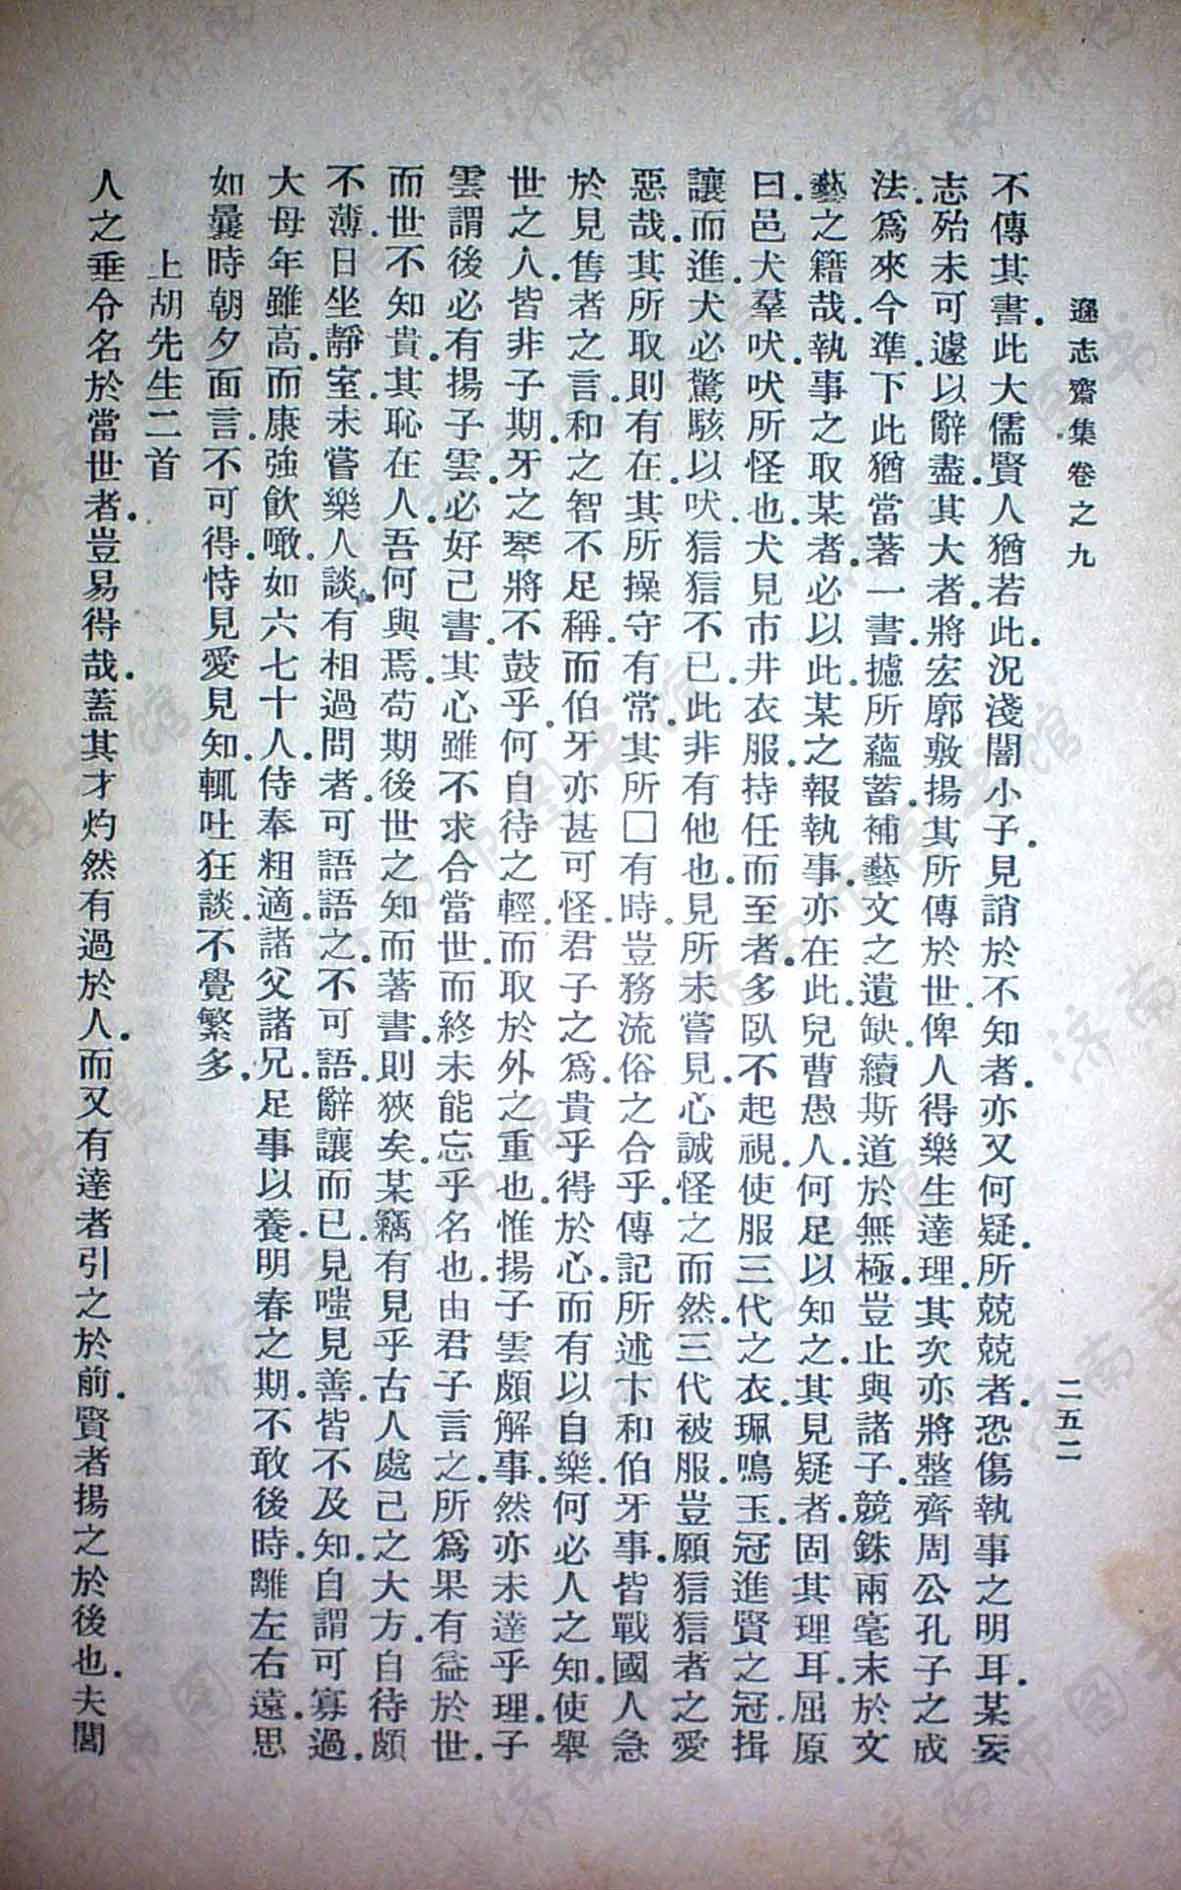 遜志齋集卷之九 二五二
不傳其書.此大儒賢人猶若此.況淺闇小子.見誚於不知者.亦又何疑.所兢兢者.恐傷執事之明耳.某妄
志殆未可遽以辭盡.其大者.將宏廓敷揚其所傳於世.俾人得樂生達理.其次亦將整齊周公孔子之成
法.爲來今準.下此猶當著一書.攄所蘊蓄.補藝文之遺缺.續斯道於無極.豈止與諸子.競銖兩毫末於文
藝之籍哉.執事之取某者.必以此.某之報執事.亦在此.兒曹愚人.何足以知之.其見疑者.固其理耳.屈原
曰.邑犬羣吠.吠所怪也.犬見市井衣服.持任而至者.多臥不起視.使服三代之衣.珮鳴玉.冠進賢之冠.揖
讓而進.犬必驚駭以吠.狺狺不已.此非有他也.見所未嘗見.心誠怪之而然.三代被服.豈願狺狺者之愛
惡哉.其所取.則有在.其所操守有常.其所□有時.豈務流俗之合乎.傳記所述卞和伯牙事.皆戰國人急
於見售者之言.和之智不足稱.而伯牙亦甚可怪.君子之爲貴乎.得於心.而有以自樂.何必人之知.使舉
世之人.皆非子期.牙之琴將不鼓乎.何自待之輕.而取於外之重也.惟揚子雲頗解事.然亦未達乎理.子
雲謂後必有揚子雲.必好己書.其心雖不求合當世.而終未能忘乎名也.由君子言之.所爲果有益於世.
而世不知貴.其恥在人.吾何與焉.苟期後世之知而著書.則狹矣.某竊有見乎古人處己之大方.自待頗
不薄.日坐靜室.未嘗樂人談.有相過問者.可語語之.不可語.辭讓而已.見嗤見善.皆不及知.自謂可寡過.
大母年雖高.而康強飲噉.如六七十人.侍奉粗適.諸父諸兄.足事以養.明春之期.不敢後時.離左右遠.思
如曩時朝夕面言.不可得.恃見愛見知.輒吐狂談.不覺繁多.
上胡先生二首
人之垂令名於當世者.豈易得哉.蓋其才灼然有過於人.而又有達者引之於前.賢者揚之於後也.夫閭